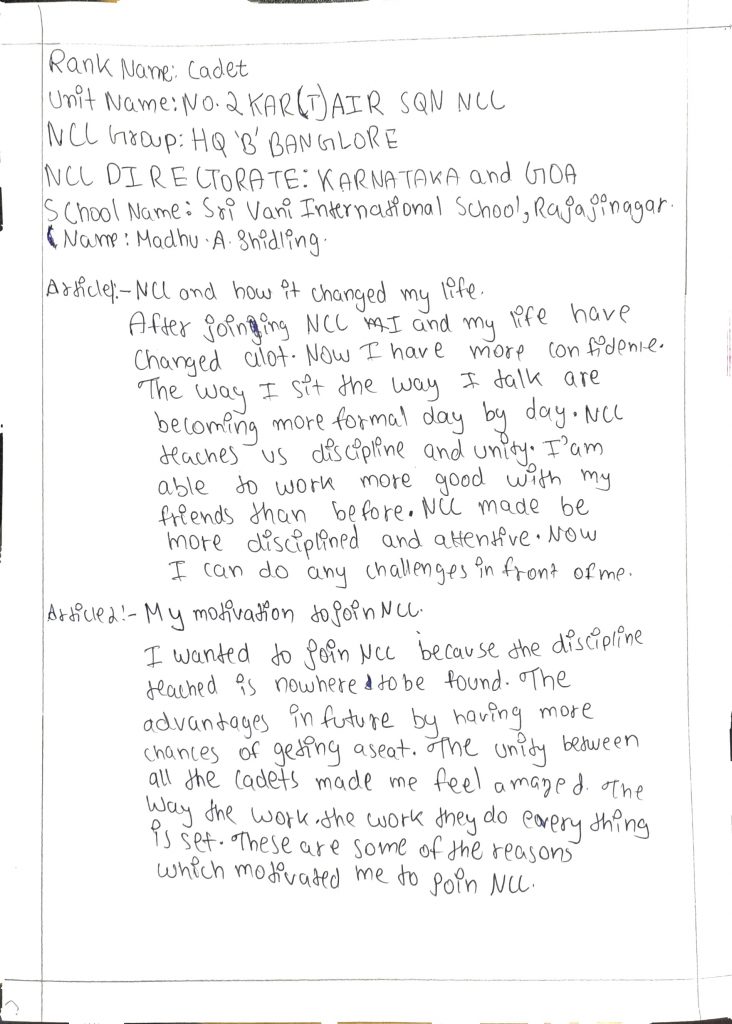 Rank Name: Cadet
Unit Name: NO. 2 KAR(T) AIR SQN NCC
NCC Group: HQ 'B' BANGLORE
NCC DIRECTORATE: KARNATAKA and GOA
School Name: Sri Vani International School, Rajajinagar.
Name: Madhu. A. Shidling.
Article1:- NCC and how it changed my life.
After joinging NCC I and my life have
changed alot. Now I have more confidence.
The way I sit the way I talk are
becoming more formal day by day. NCC
teaches us discipline and unity. I'am
able to work more good with my
friends than before. NCC made be
more disciplined and attentive. Now
I can do any challenges in front of me.
Article2:- My motivation to join NCC.
I wanted to join NCC because the discipline
teached is nowhere to be found. The
advantages in future by having more
chances of geting a seat. The unity between
all the cadets made me feel amazed. The
way the work. the work they do every thing
is set. These are some of the reasons
which motivated me to join NCC.